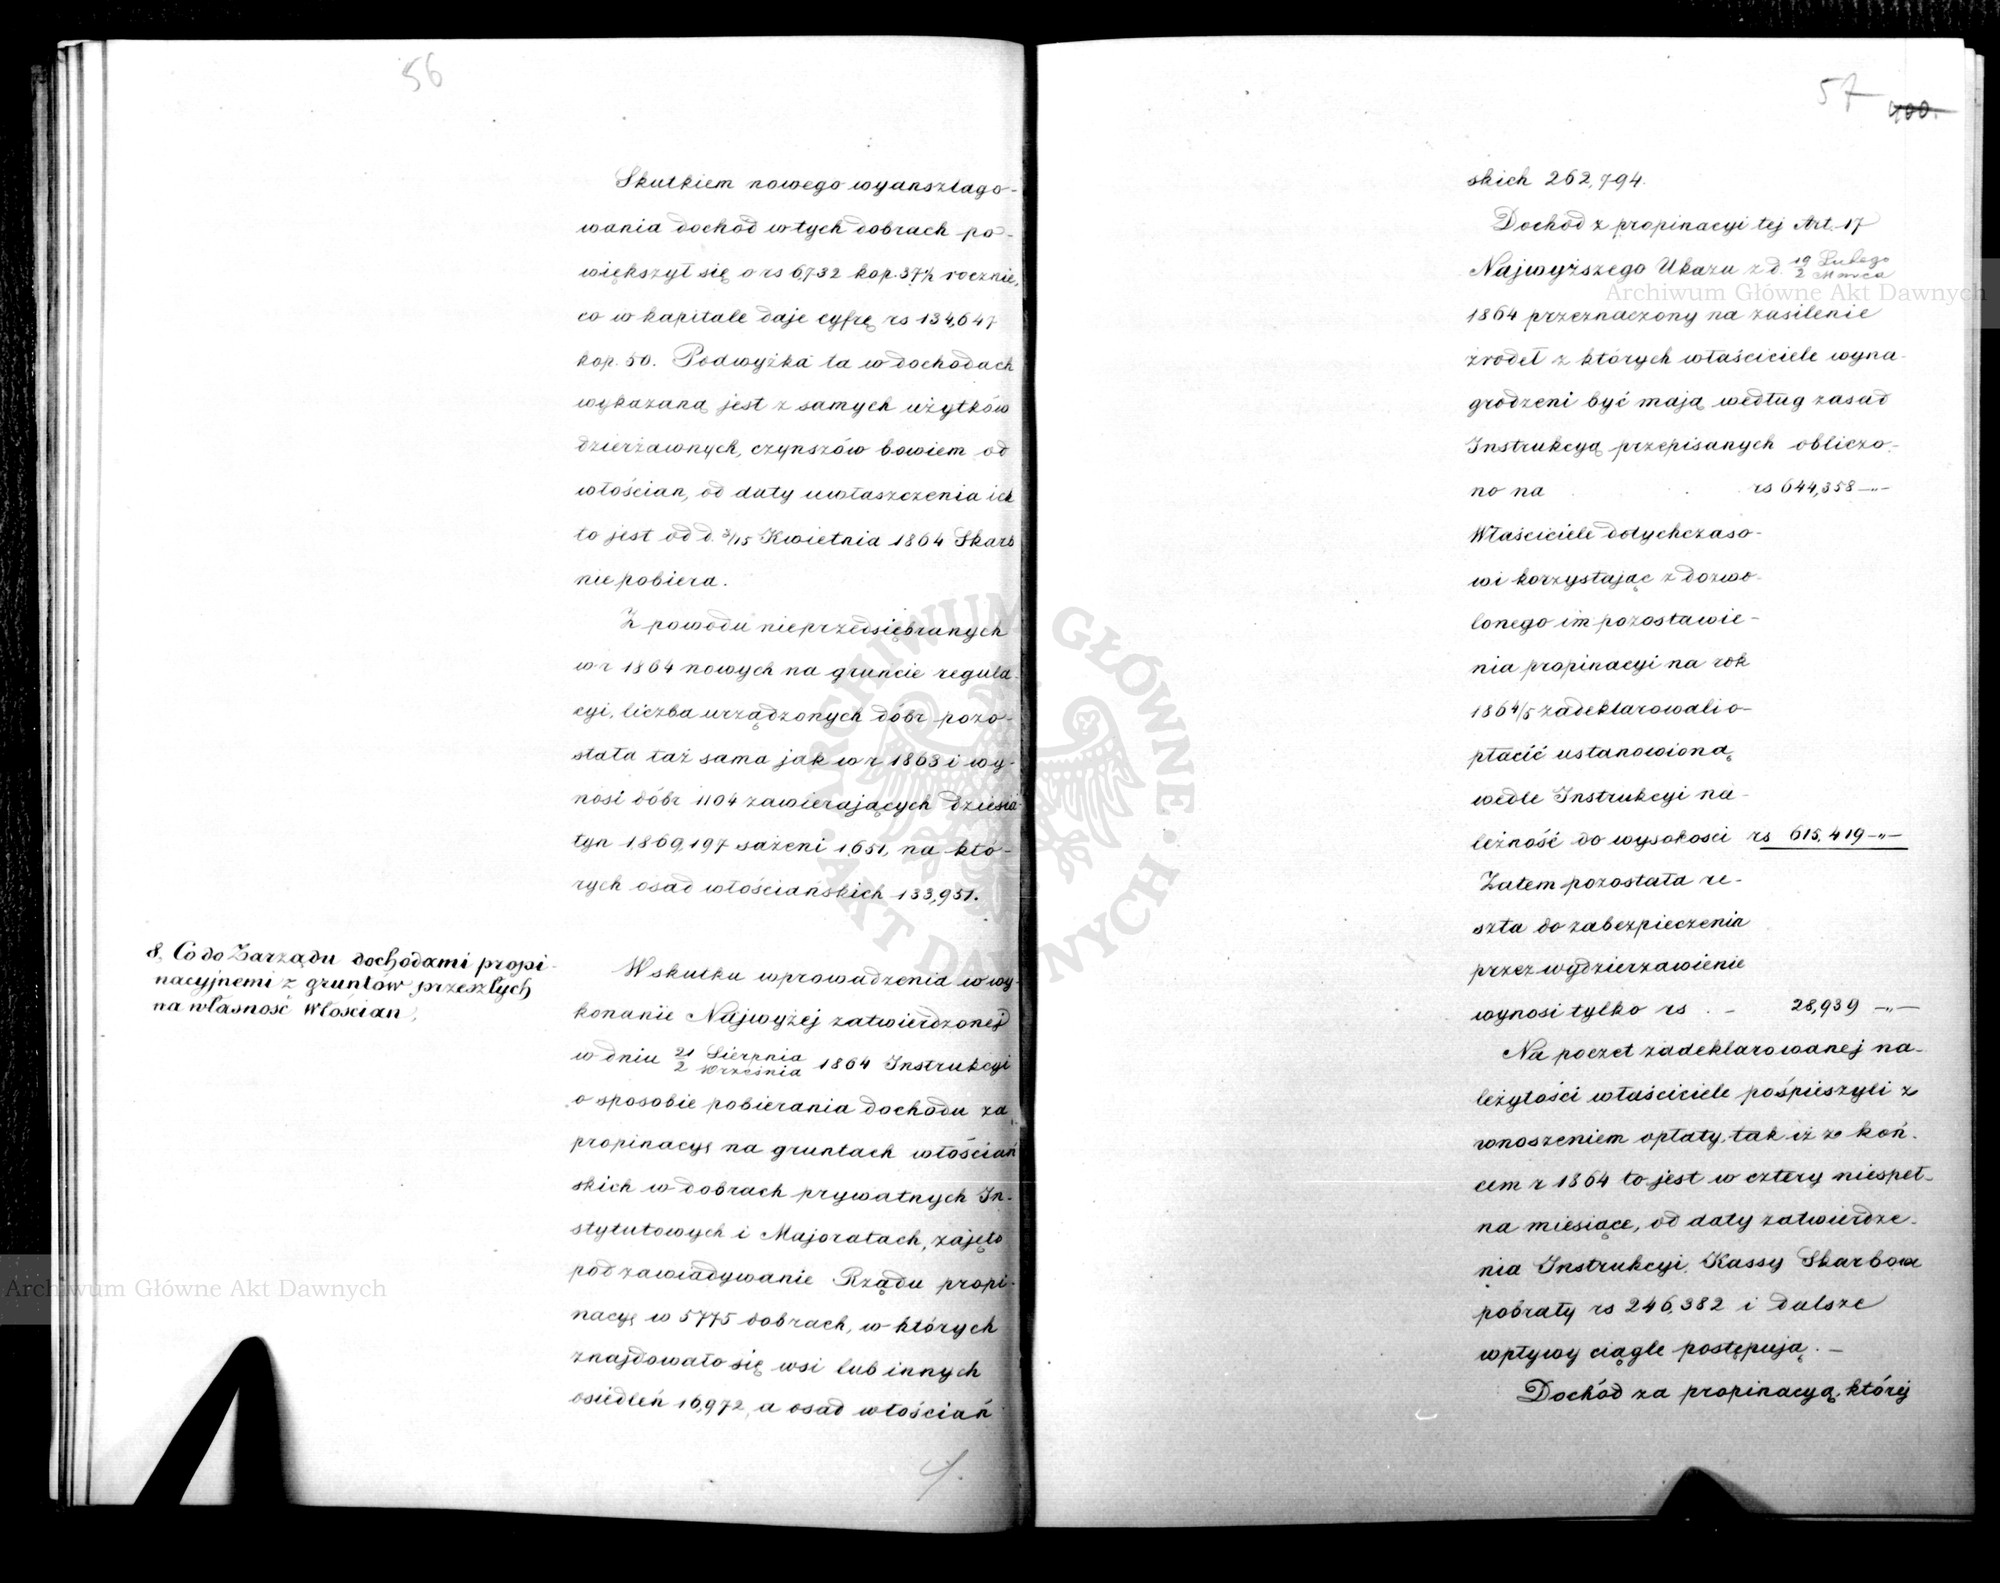 56
Skutkiem nowego wyanszlago-
wania dochód w tych dobrach po-
większył się o rs 6732 kop. 37½ rocznie,
co w kapitale daje cyfrę rs 134,647
kop. 50. Podwyżka ta w dochodach
wykazaną jest z samych użytków
dzierżawnych, czynszów bowiem od
włościan, od daty uwłaszczenia ich
to jest od d. 3/15 Kwietnia 1864 Skarb
nie pobiera.
Z powodu nieprzedsiębranych
w r 1864 nowych na gruncie regula-
cyi, liczba urządzonych dóbr pozo-
stała taż sama jak w r 1863 i wy-
nosi dóbr 1104 zawierających dziesia-
tyn 1,869,197 sażeni 1,651, na któ-
rych osad włościańskich 133,951.
8. Co do Zarządu dochodami propi-
nacyjnemi z gruntów przeszłych
na własność Włościan,
W skutku wprowadzenia w wy-
konanie Najwyżej zatwierdzonej
w dniu 21 Sierpnia / 2 Września 1864 Instrukcyi
o sposobie pobierania dochodu za
propinacyę na gruntach włościań
skich w dobrach prywatnych In-
stytutowych i Majoratach, zajęto
pod zawiadywanie Rządu propi-
nacyę w 5775 dobrach, w których
znajdowało się wsi lub innych
osiedleń 16,972, a osad włościań
57
400.
skich 262,794.
Dochód z propinacyi tej Art. 17
Najwyższego Ukazu z d. 19 Lutego / 2 Marca
1864 przeznaczony na zasilenie
źrodeł z których właściciele wyna-
grodzeni być mają według zasad
Instrukcyą przepisanych obliczo-
no na rs 644,358 –„–
Właściciele dotychczaso-
wi korzystając z dozwo-
lonego im pozostawie-
nia propinacyi na rok
1864/5 zadeklarowali o-
płacić ustanowioną
wedle Instrukcyi na-
leżność do wysokości rs 615,419 –„–
Zatem pozostała re-
szta do zabezpieczenia
przez wydzierzawienie
wynosi tylko rs . – 28,939 –„–
Na poczet zadeklarowanej na-
leżytości właściciele pośpieszyli z
wnoszeniem opłaty, tak iż z koń-
cem r 1864 to jest w cztery niespeł-
na miesiące, od daty zatwierdze-
nia Instrukcyi, Kassy Skarbowe
pobrały rs 246,382 i dalsze
wpływy ciągle postępują. –
Dochód za propinacyą, której
Archiwum Główne Akt Dawnych
Archiwum Główne Akt Dawnych
ARCHIWUM GŁÓWNE
AKT DAWNYCH